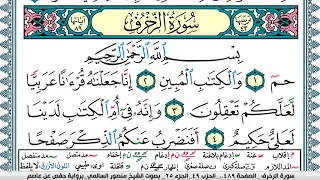 سُورَةُ الزُّخْرُفِ
بِسْمِ اللَّهِ الرَّحْمَٰنِ الرَّحِيمِ
حمٓ ١ وَالْكِتَابِ الْمُبِينِ ٢ إِنَّا جَعَلْنَاهُ قُرْءَانًا عَرَبِيًّا
لَّعَلَّكُمْ تَعْقِلُونَ ٣ وَإِنَّهُ فِىٓ أُمِّ الْكِتَابِ لَدَيْنَا
لَعَلِىٌّ حَكِيمٌ ٤ أَفَنَضْرِبُ عَنكُمُ الذِّكْرَ صَفْحًا
سورة الزخرف - الصفحة ٤٨٩ - الحزب ٤٩ - الجزء ٢٥ - بصوت الشيخ منصور السالمي - برواية حفص عن عاصم